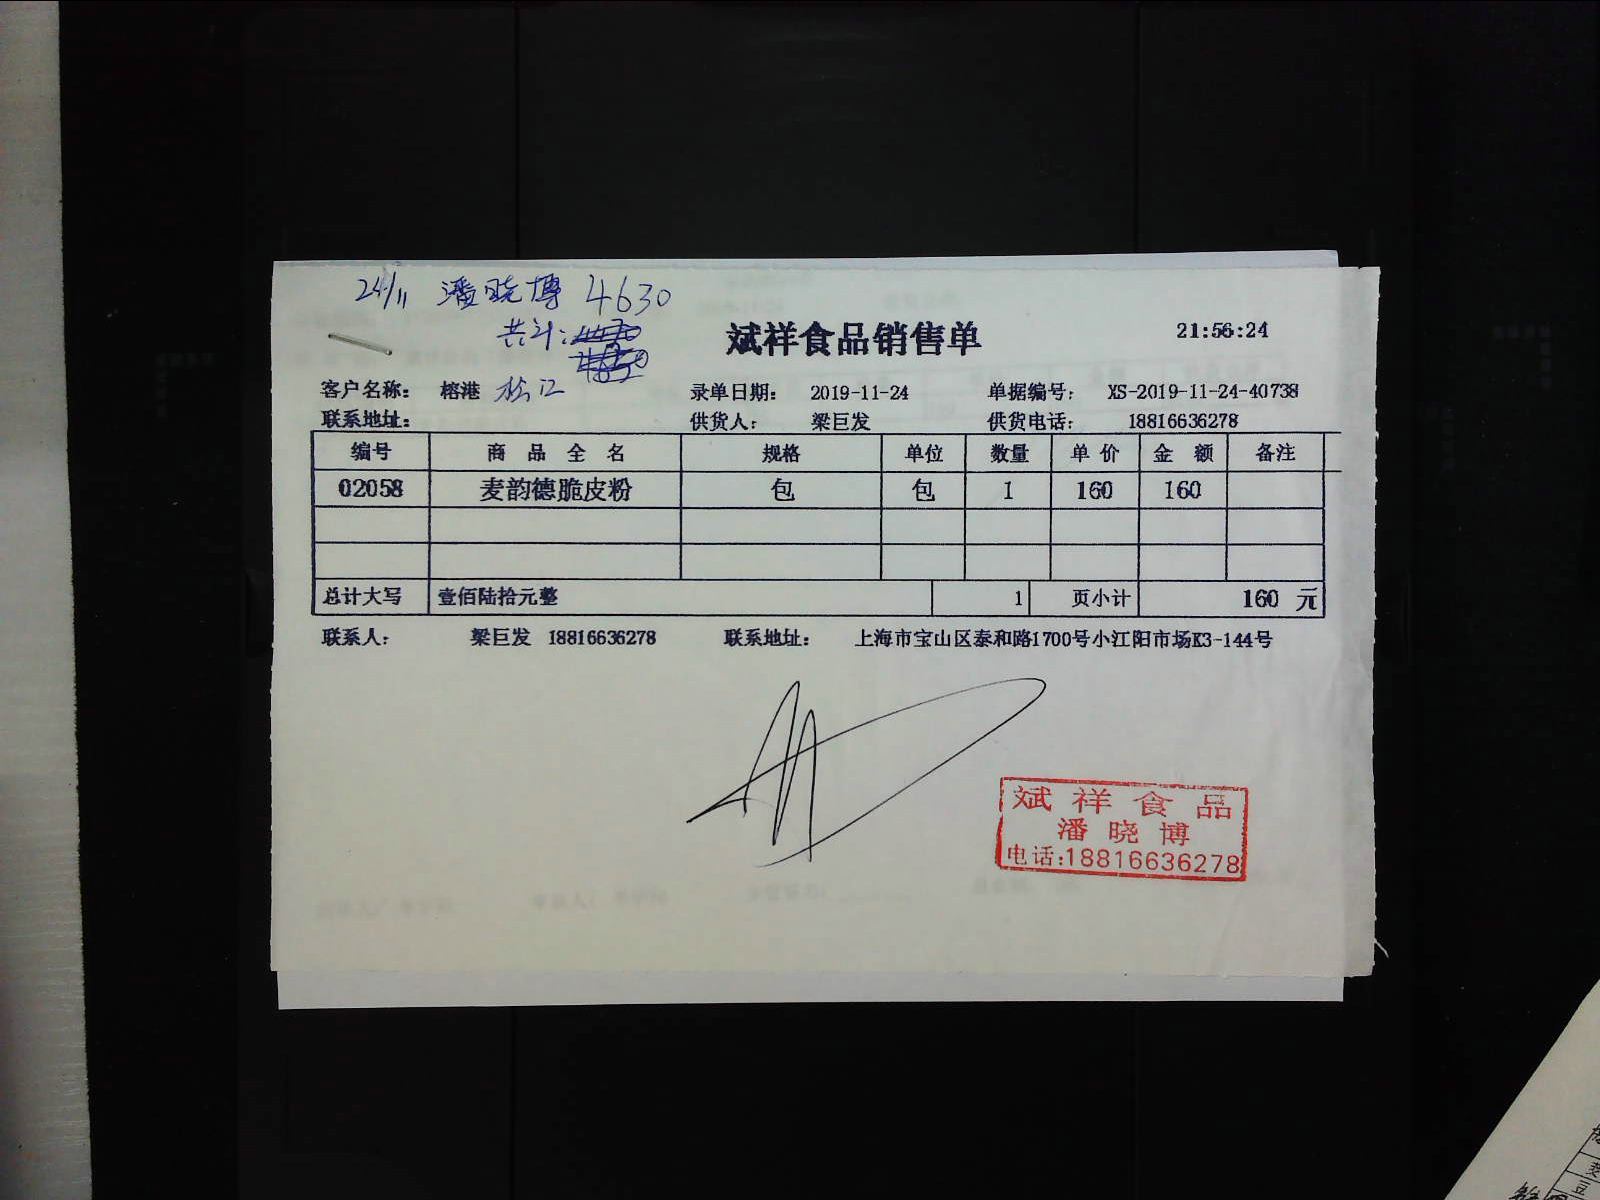 24/11 潘晓博 4630
共计:
斌祥食品销售单 21:56:24
客户名称: 榕港 松江 录单日期: 2019-11-24 单据编号: XS-2019-11-24-40738
联系地址: 供货人: 梁巨发 供货电话: 18816636278
编号 商品全名 规格 单位 数量 单价 金额 备注
02058 麦韵德脆皮粉 包 包 1 160 160
总计大写 壹佰陆拾元整 1 页小计 160 元
联系人: 梁巨发 18816636278 联系地址: 上海市宝山区泰和路1700号小江阳市场K3-144号
斌祥食品
潘晓博
电话:18816636278